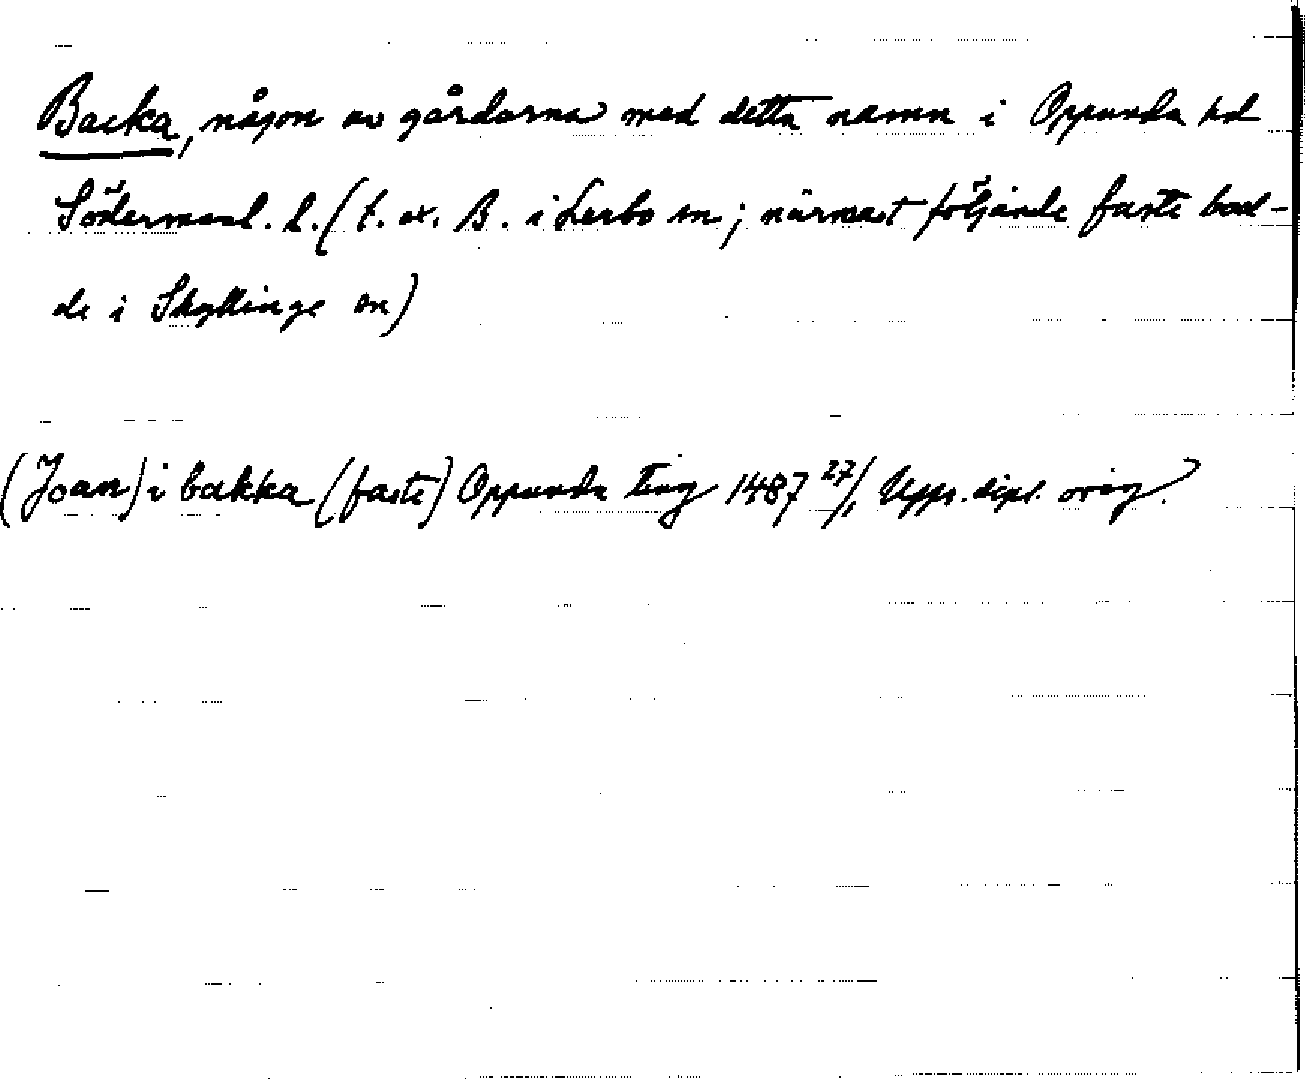 Backa, någon av gårdarna med detta namn i Oppunda hd
Södermanl. l. (t. ex. B. i Lerbo sn; närmast följande faste bod-
de i Skyllinge sn)
(Joan) i bakka (faste) Oppunda ting 1487 27/1 Upps. dipl. orig.